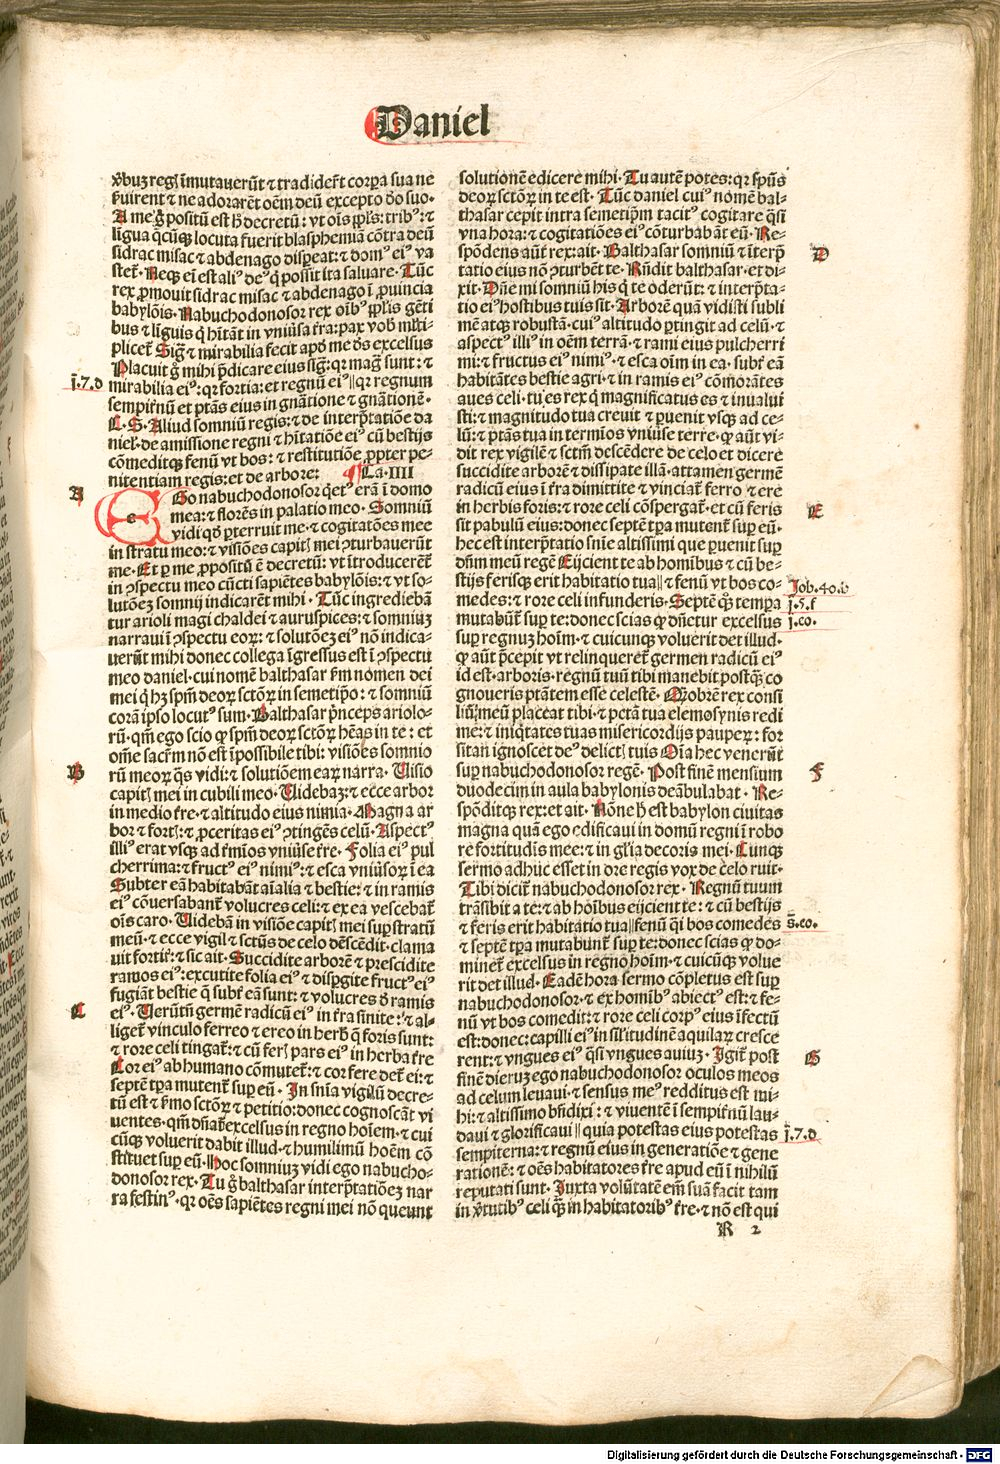 Daniel
v̄buz regꝭ īmutauerūt ⁊ tradider̄t corꝑa sua ne
ẜuirent ⁊ ne adorarēt oēm deū excepto d̄o suo.
A me gͦ positū est h̄ decretū: vt oīs ppl̄s: tribꝰ: ⁊
līgua q̄cūqꝫ locuta fuerit blasphemiā cōtra deū
sidrac misac ⁊ abdenago disꝑeat: ⁊ domꝰ eiꝰ va
stet᷑. Neqꝫ eī est aliꝰ deꝰ q̇ possit ita saluare. Tūc
rex ꝓmouit sidrac misac ⁊ abdenago ī ꝓuincia
babylōis. Nabuchodonosor rex oībꝰ ppl̄is gēti
bus ⁊ līguis q̇ hītāt in vniūsa t̄ra: pax vob̄ mlti-
plicet᷑ Sigͣ ⁊ mirabilia fecit apd̄ me dꝰ excelsus
Placuit gͦ mihi p̄dicare eius sigͣ: qꝛ magͣ sunt: ⁊
j̄.7.d
mirabilia eiꝰ: qꝛ fortia: et regnū eiꝰ‖ qꝛ regnum
sempit̄nū et ptās eius in gn̄atione ⁊ gn̄ationē.
C. S. Aliud somniū regis: ⁊ de interp̄tatiōe da
niel. de amissione regni ⁊ hītatiōe eiꝰ cū bestijs
cōmeditqꝫ fenū vt bos: ⁊ restitutiōe ꝓpter pe-
nitentiam regis: et de arbore: ¶ Ca. IIII
A
e Go nabuchodonosor q̇etꝰ erā ī domo
mea: ⁊ florēs in palatio meo. Somniū
vidi qd̄ ꝑterruit me. ⁊ cogitatōes mee
in stratu meo: ⁊ visiōes capitꝭ mei ꝯturbauerūt
me. Et ꝑ me ꝓpositū ē decretū: vt ītroducerēt᷑
in ꝯspectu meo cūcti sapiētes babylōis: ⁊ vt so-
lutōez somnij indicarēt mihi. Tūc ingrediebā
tur arioli magi chaldei ⁊ auruspices: ⁊ somniuz
narraui ī ꝯspectu eoꝝ: ⁊ solutōez eiꝰ nō indica-
uerūt mihi donec collega īgressus est ī ꝯspectu
meo daniel. cui nomē balthasar ẜm nomen dei
mei q̇ hꝫ spm̄ deoꝝ sctōꝝ in semetip̄o: ⁊ somniū
corā ipso locutꝰ sum. Balthasar p̄nceps ariolo-
rū. qm̄ ego scio ꝙ spm̄ deoꝝ sctōꝝ hēas in te: et
om̄e sacr̄m nō est īpossibile tibi: visiōes somnio
B
rū meoꝝ q̄s vidi: ⁊ solutiōem eaꝝ narra. Visio
capitꝭ mei in cubili meo. Videbaz: ⁊ ecce arbor
in medio t̄re. ⁊ altitudo eius nimia. Magna ar
bor ⁊ fortꝭ: ⁊ ꝓceritas eiꝰ ꝯtingēs celū. Aspectꝰ
illiꝰ erat vsqꝫ ad t̄mīos vniūse t̄re. Folia eiꝰ pul
cherrima: ⁊ fructꝰ eiꝰ nimiꝰ: ⁊ esca vniūsoꝝ ī ea
Subter eā habitabāt aīalia ⁊ bestie: ⁊ in ramis
eiꝰ cōuersabant᷑ volucres celi: ⁊ ex ea vescebat᷑
oīs caro. Videbā in visiōe capitꝭ mei suꝑ stratū
meū. ⁊ ecce vigil ⁊ sctūs de celo dēscēdit. clama
uit fortit᷑: ⁊ sic ait. Succidite arborē ⁊ prescidite
ramos eiꝰ: excutite folia eiꝰ ⁊ disꝑgite fructꝰ eiꝰ
fugiāt bestie q̄ subt᷑ eā sunt: ⁊ volucres d̄ ramis
C
eiꝰ. Verūtn̄ germē radicū eiꝰ in t̄ra sinite: ⁊ al-
liget᷑ vinculo ferreo ⁊ ereo in herbꝭ q̄ foris sunt:
⁊ rore celi tingat᷑: ⁊ cū ferꝭ pars eiꝰ in herba t̄re
Cor eiꝰ ab humano cōmutet᷑: ⁊ cor fere det᷑ ei: ⁊
septē tꝑa mutent᷑ suꝑ eū. In sn̄ia vigilū decre-
tū est ⁊ ẜmo sctōꝝ ⁊ petitio: donec cognoscāt vi
uentes. qm̄ dn̄at᷑ excelsus in regno hoīem. ⁊ cui
cūqꝫ voluerit dabit illud. ⁊ humilimū hoēm cō
stituet suꝑ eū. ‖ Hoc somniuz vidi ego nabucho-
donosor rex. Tu gͦ balthasar interp̄tatiōez nar
ra festinꝰ. qꝛ oēs sapiētes regni mei nō queunt
solutionē edicere mihi. Tu autē potes: qꝛ spūs
deoꝝ sctōꝝ in te est. Tūc daniel cuiꝰ nomē bal-
thasar cepit intra semetip̄m tacitꝰ cogitare q̄si
vna hora: ⁊ cogitatiōes eiꝰ cōturbabāt eū. Re-
D
spōdens aūt rex: ait. Balthasar somniū ⁊ īterp̄
tatio eius nō ꝯturbēt te. Rn̄dit balthasar. et di-
xit. Dn̄e mi somniū his q̇ te oderūt: ⁊ interp̄ta-
tio eiꝰ hostibus tuis sit. Arborē quā vidisti subli
mē atqꝫ robustā. cuiꝰ altitudo ꝑtingit ad celū. ⁊
aspectꝰ illiꝰ in oēm terrā. ⁊ rami eius pulcherri
mi: ⁊ fructus eiꝰ nimiꝰ. ⁊ esca oīm in ea. subt᷑ eā
habitātes bestie agri. ⁊ in ramis eiꝰ cōmorātes
aues celi. tu es rex q̇ magnificatus es ⁊ inualui
sti: ⁊ magnitudo tua creuit ⁊ ꝑuenit vsqꝫ ad ce-
lū: ⁊ ptās tua in termīos vniūse terre. ꝙ aūt vi-
dit rex vigilē ⁊ sctm̄ descēdere de celo et dicere
succidite arborē ⁊ dissipate illā. attamen germē
radicū eius ī t̄ra dimittite ⁊ vinciat᷑ ferro ⁊ ere
E
in herbis foris: ⁊ rore celi cōsꝑgat᷑. et cū feris
sit pabulū eius: donec septē tꝑa mutent᷑ suꝑ eū.
hec est interp̄tatio sn̄ie altissimi que ꝑuenit suꝑ
dn̄m meū regē Eijcient te ab homibus ⁊ cū be-
Job.40.b
stijs ferisqꝫ erit habitatio tua‖ ⁊ fenū vt bos co-
j̄.5.f
medes: ⁊ rore celi infunderis. Septē qꝫ tempa
j.co.
mutabūt᷑ suꝑ te: donec scias ꝙ dn̄etur excelsus
suꝑ regnuz hoīm. ⁊ cuicunqꝫ voluerit det illud.
ꝙ aūt p̄cepit vt relinqueret᷑ germen radicū eiꝰ
id est. arboris. regnū tuū tibi manebit postqꝫ̄ co
gnoueris ptātem esse celestē. Qobrē rex consi
liū meū placeat tibi. ⁊ petā tua elemosynis redi
me: ⁊ iniq̇tates tuas misericordijs pauperꝝ: for
sitan ignoscet deꝰ delictꝭ tuis Oīa hec venerūt
F
suꝑ nabuchodonosor regē. Post finē mensium
duodecim in aula babylonis deābulabat. Re-
spōditqꝫ rex: et ait. Nōne h̄ est babylon ciuitas
magna quā ego edificaui in domū regni ī robo
re fortitudis mee: ⁊ in glīa decoris mei. Cunqꝫ
sermo adhuc esset in ore regis vox de celo ruit.
Tibi dicit᷑ nabuchodonosor rex. Regnū tuum
trāsibit a te: ⁊ ab hoībus eijcient te: ⁊ cū bestijs
s̄.co.
⁊ feris erit habitatio tua‖ fenū q̄si bos comedes
⁊ septē tꝑa mutabunt᷑ suꝑ te: donec scias ꝙ do-
minet᷑ excelsus in regno hoīm. ⁊ cuicūqꝫ volue
rit det illud. Eadē hora sermo cōpletus est suꝑ
nabuchodonosor. ⁊ ex homibꝰ abiectꝰ est: ⁊ fe-
nū vt bos comedit: ⁊ rore celi corpꝰ eius īfectū
est: donec: capilli eiꝰ in sil̄itudinē aquilaꝝ cresce
G
rent: ⁊ vngues eiꝰ q̄si vngues auiuz. Igit᷑ post
finē dieruz ego nabuchodonosor oculos meos
ad celum leuaui. ⁊ sensus meꝰ redditus est mi-
hi: ⁊ altissimo bn̄dixi: ⁊ viuentē ī sempit̄nū lau-
j̄.7.d
daui ⁊ glorificaui‖ quia potestas eius potestas
sempiterna: ⁊ regnū eius in generatiōe ⁊ gene
rationē: ⁊ oēs habitatores t̄re apud eū ī nihilū
reputati sunt. Juxta volūtatē em̄ suā facit tam
in v̄tutibꝰ celi qꝫ̄ in habitatoribꝰ t̄re. ⁊ nō est qui
R 2
Digitalisierung gefördert durch die Deutsche Forschungsgemeinschaft - DFG